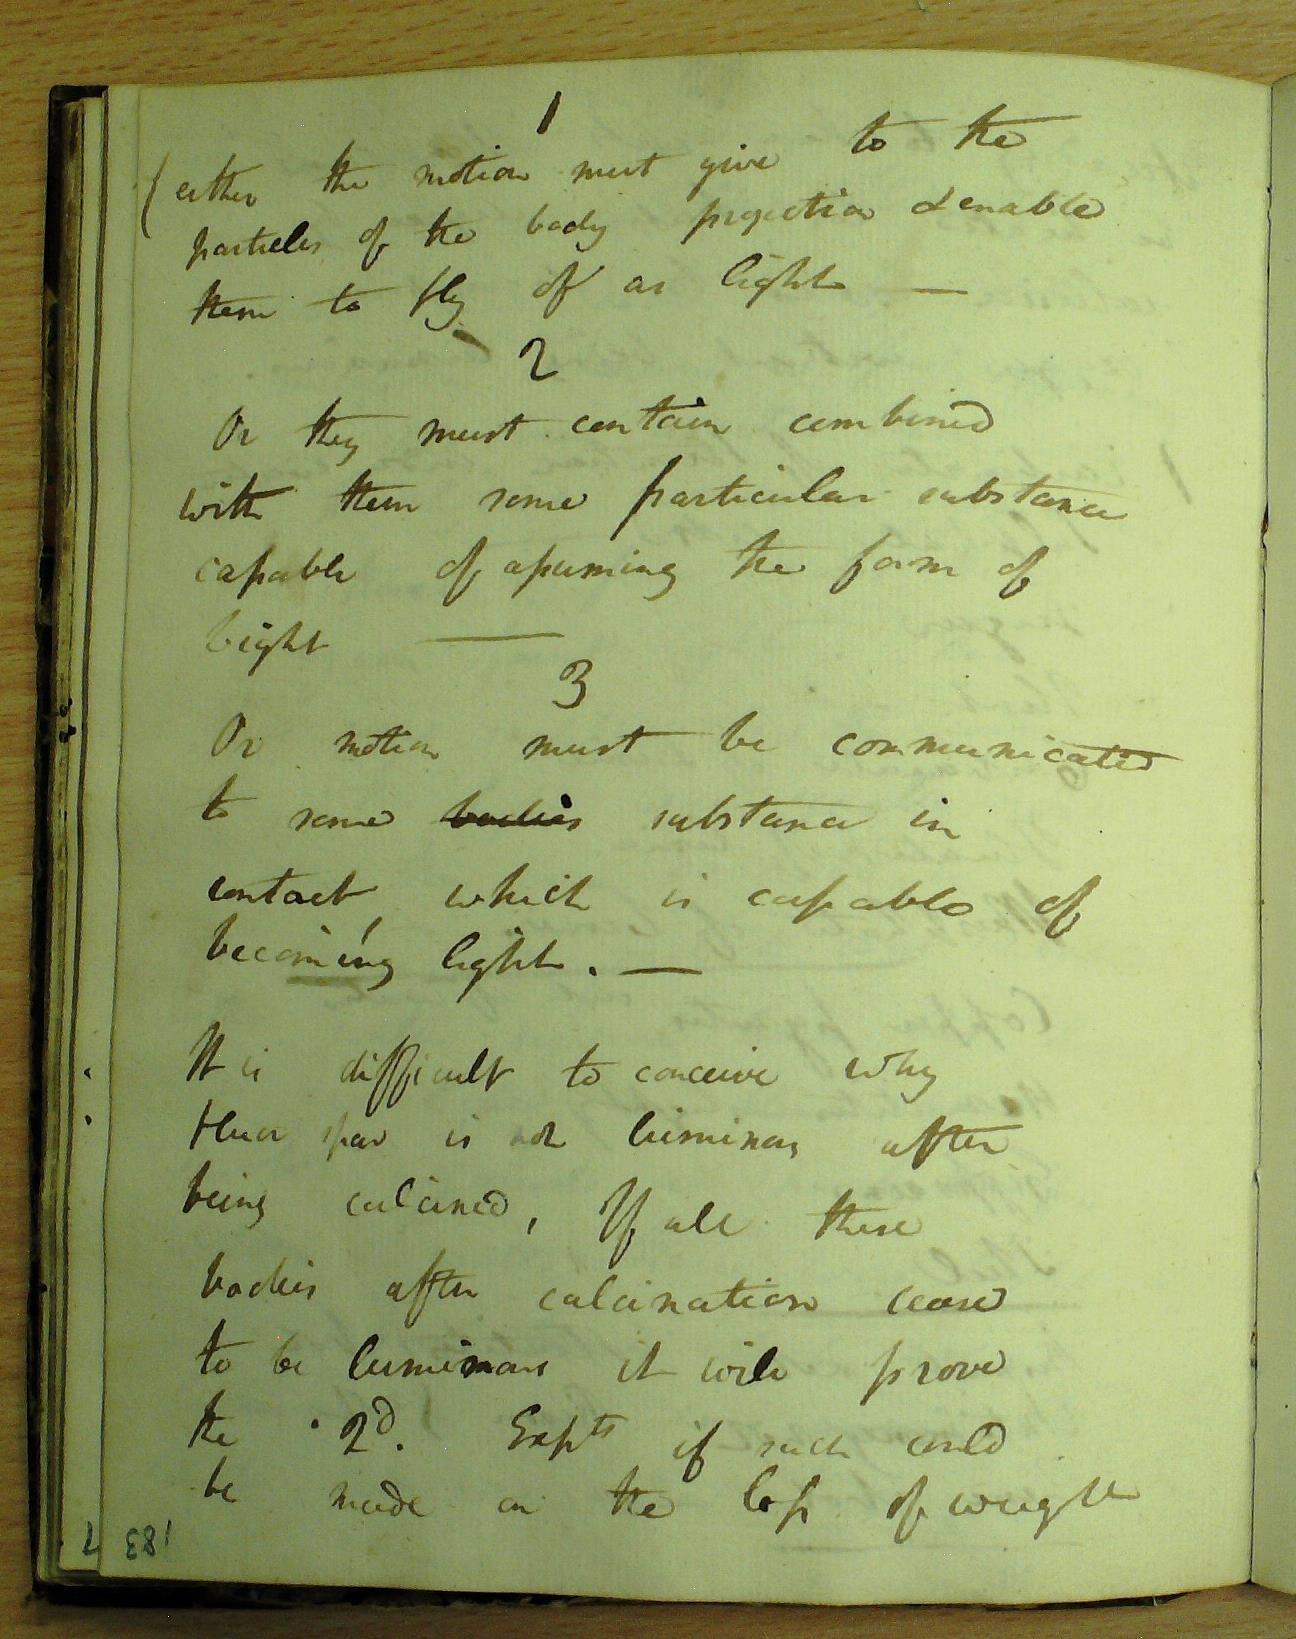 1
(either the motion must give to the
particles of the body projection & enable
them to fly of as light —
2
Or they must contain combined
with them some particular substance
capable of assuming the form of
light —
3
Or motion must be communicated
to some bodies substance in
contact which is capable of
becoming light. —
It is difficult to conceive why
fluor spar is not luminous after
being calcined, If all these
bodies after calcination cease
to be luminous it will prove
the 2d. Expts if such could
be made on the loss of weight
183